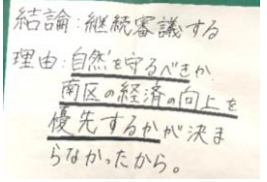 結論:継続審議する
理由:自然を守るべきか
南区の経済の向上を
優先するかが決ま
らなかったから。